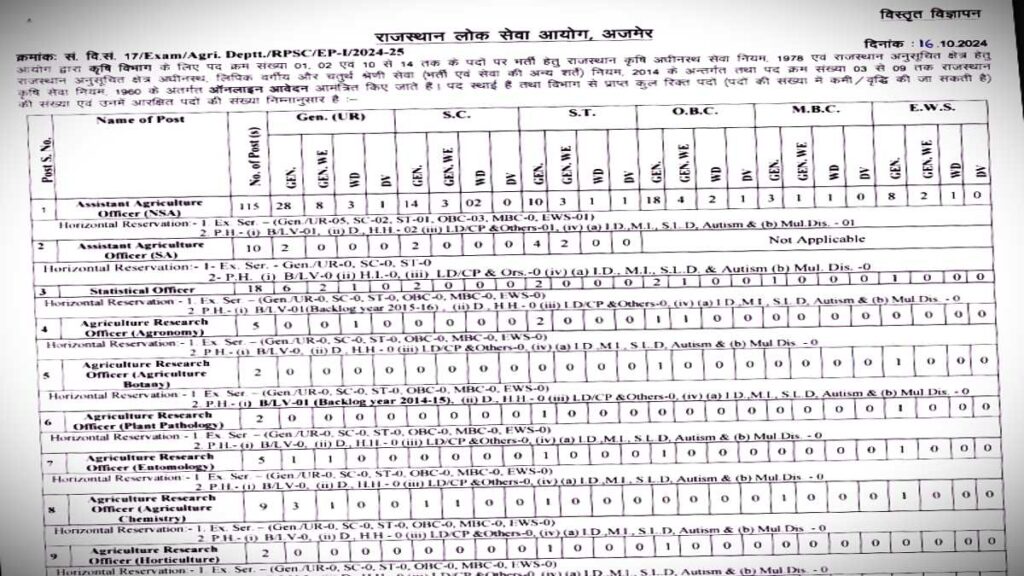 विस्तृत विज्ञापन
राजस्थान लोक सेवा आयोग, अजमेर
क्रमांक: सं. वि.सं. 17/Exam/Agri. Deptt./RPSC/EP-I/2024-25 दिनांक : 16.10.2024
आयोग द्वारा कृषि विभाग के लिए पद क्रम संख्या 01, 02 एवं 10 से 14 तक के पदों पर भर्ती हेतु राजस्थान कृषि अधीनस्थ सेवा नियम, 1978 एवं राजस्थान अनुसूचित क्षेत्र
अधीनस्थ, लिपिक वर्गीय और चतुर्थ श्रेणी सेवा (भर्ती एवं सेवा की अन्य शर्तें) नियम, 2014 के अन्तर्गत तथा पद क्रम संख्या 03 से 09 तक राजस्थान
कृषि सेवा नियम, 1960 के अंतर्गत ऑनलाइन आवेदन आमंत्रित किए जाते है। पद स्थाई है तथा विभाग से प्राप्त कुल रिक्त पदों (पदों की संख्या में कमी/वृद्धि की जा सकती है)
की संख्या एवं उनमें आरक्षित पदों की संख्या निम्नानुसार है :–
Post S. No. Name of Post No. of Post(s) Gen. (UR) S.C. S.T. O.B.C. M.B.C. E.W.S.
GEN. GEN. WE WD DV GEN. GEN. WE WD DV GEN. GEN. WE WD DV GEN. GEN. WE WD DV GEN. GEN. WE WD DV GEN. GEN. WE WD DV
1 Assistant Agriculture Officer (NSA) 115 28 8 3 1 14 3 02 0 10 3 1 1 18 4 2 1 3 1 1 0 8 2 1 0
Horizontal Reservation - 1 Ex Ser. – (Gen./UR-05, SC-02, ST-01, OBC-03, MBC-0, EWS-01)
2 P.H.- (i) B/LV-01, (ii) D., H.H - 02 (iii) LD/CP &Others-01, (iv) (a) I.D., M.I., S.L.D, Autism & (b) Mul.Dis. - 01
2 Assistant Agriculture Officer (SA) 10 2 0 0 0 2 0 0 0 4 2 0 0 Not Applicable
Horizontal Reservation:- 1- Ex. Ser. - Gen./UR-0, SC-0, ST-0
2- P.H. (i) B/LV-0 (ii) H.I.-0, (iii) LD/CP & Ors.-0 (iv) (a) I.D., M.I., S.L.D. & Autism (b) Mul. Dis. -0
3 Statistical Officer 18 6 2 1 0 2 0 0 0 2 0 0 0 2 1 0 0 1 0 0 0 1 0 0 0
Horizontal Reservation - 1. Ex Ser – (Gen/UR-0, SC-0, ST-0, OBC-0, MBC-0, EWS-0)
2 P.H.- (i) B/LV-01(Backlog year 2015-16) , (ii) D., H.H - 0 (iii) LD/CP &Others-0, (iv) (a) I.D., M.I., S.L.D, Autism & (b) Mul Dis. - 0
4 Agriculture Research Officer (Agronomy) 5 0 0 1 0 0 0 0 0 2 0 0 0 1 1 0 0 0 0 0 0 0 0 0 0
Horizontal Reservation - 1 Ex. Ser – (Gen/UR-0, SC-0, ST-0, OBC-0, MBC-0, EWS-0)
2 P.H.- (i) B/LV-0, (ii) D., H.H - 0 (iii) LD/CP &Others-0, (iv) (a) I.D., M.I., S.L.D, Autism & (b) Mul Dis. - 0
5 Agriculture Research Officer (Agriculture Botany) 2 0 0 0 0 0 0 0 0 0 0 0 0 1 0 0 0 0 0 0 0 1 0 0 0
Horizontal Reservation - 1 Ex. Ser. – (Gen/UR-0, SC-0, ST-0, OBC-0, MBC-0, EWS-0)
2 P.H.- (i) B/LV-01 (Backlog year 2014-15), (ii) D., H.H - 0 (iii) LD/CP &Others-0, (iv) (a) I.D., M.I., S.L.D, Autism & (b) Mul Dis. - 0
6 Agriculture Research Officer (Plant Pathology) 2 0 0 0 0 0 0 0 0 1 0 0 0 0 0 0 0 0 0 0 0 1 0 0 0
Horizontal Reservation - 1 Ex. Ser. – (Gen/UR-0, SC-0, ST-0, OBC-0, MBC-0, EWS-0)
2 P.H.- (i) B/LV-0, (ii) D., H.H - 0 (iii) LD/CP &Others-0, (iv) (a) I.D., M.I., S.L.D, Autism & (b) Mul Dis. - 0
7 Agriculture Research Officer (Entomology) 5 1 1 0 0 0 0 0 0 1 0 0 0 1 0 0 0 0 0 0 0 1 0 0 0
Horizontal Reservation - 1 Ex. Ser. – (Gen/UR-0, SC-0, ST-0, OBC-0, MBC-0, EWS-0)
2 P.H.- (i) B/LV-0, (ii) D., H.H - 0 (iii) LD/CP &Others-0, (iv) (a) I.D., M.I., S.L.D, Autism & (b) Mul Dis. - 0
8 Agriculture Research Officer (Agriculture Chemistry) 9 3 1 0 0 1 1 0 0 0 0 0 0 1 0 0 0 1 0 0 0 1 0 0 0
Horizontal Reservation:- 1. Ex. Ser. – (Gen/UR-0, SC-0, ST-0, OBC-0, MBC-0, EWS-0)
2. P.H.- (i) B/LV-0, (ii) D., H.H - 0 (iii) LD/CP &Others-0, (iv) (a) I.D., M.I., S.L.D, Autism & (b) Mul Dis. - 0
9 Agriculture Research Officer (Horticulture) 2 0 0 0 0 0 0 0 0 1 0 0 0 1 0 0 0 0 0 0 0 0 0 0 0
Horizontal Reservation:- 1. Ex. Ser. – (Gen/UR-0, SC-0, ST-0, OBC-0, MBC-0, EWS-0)